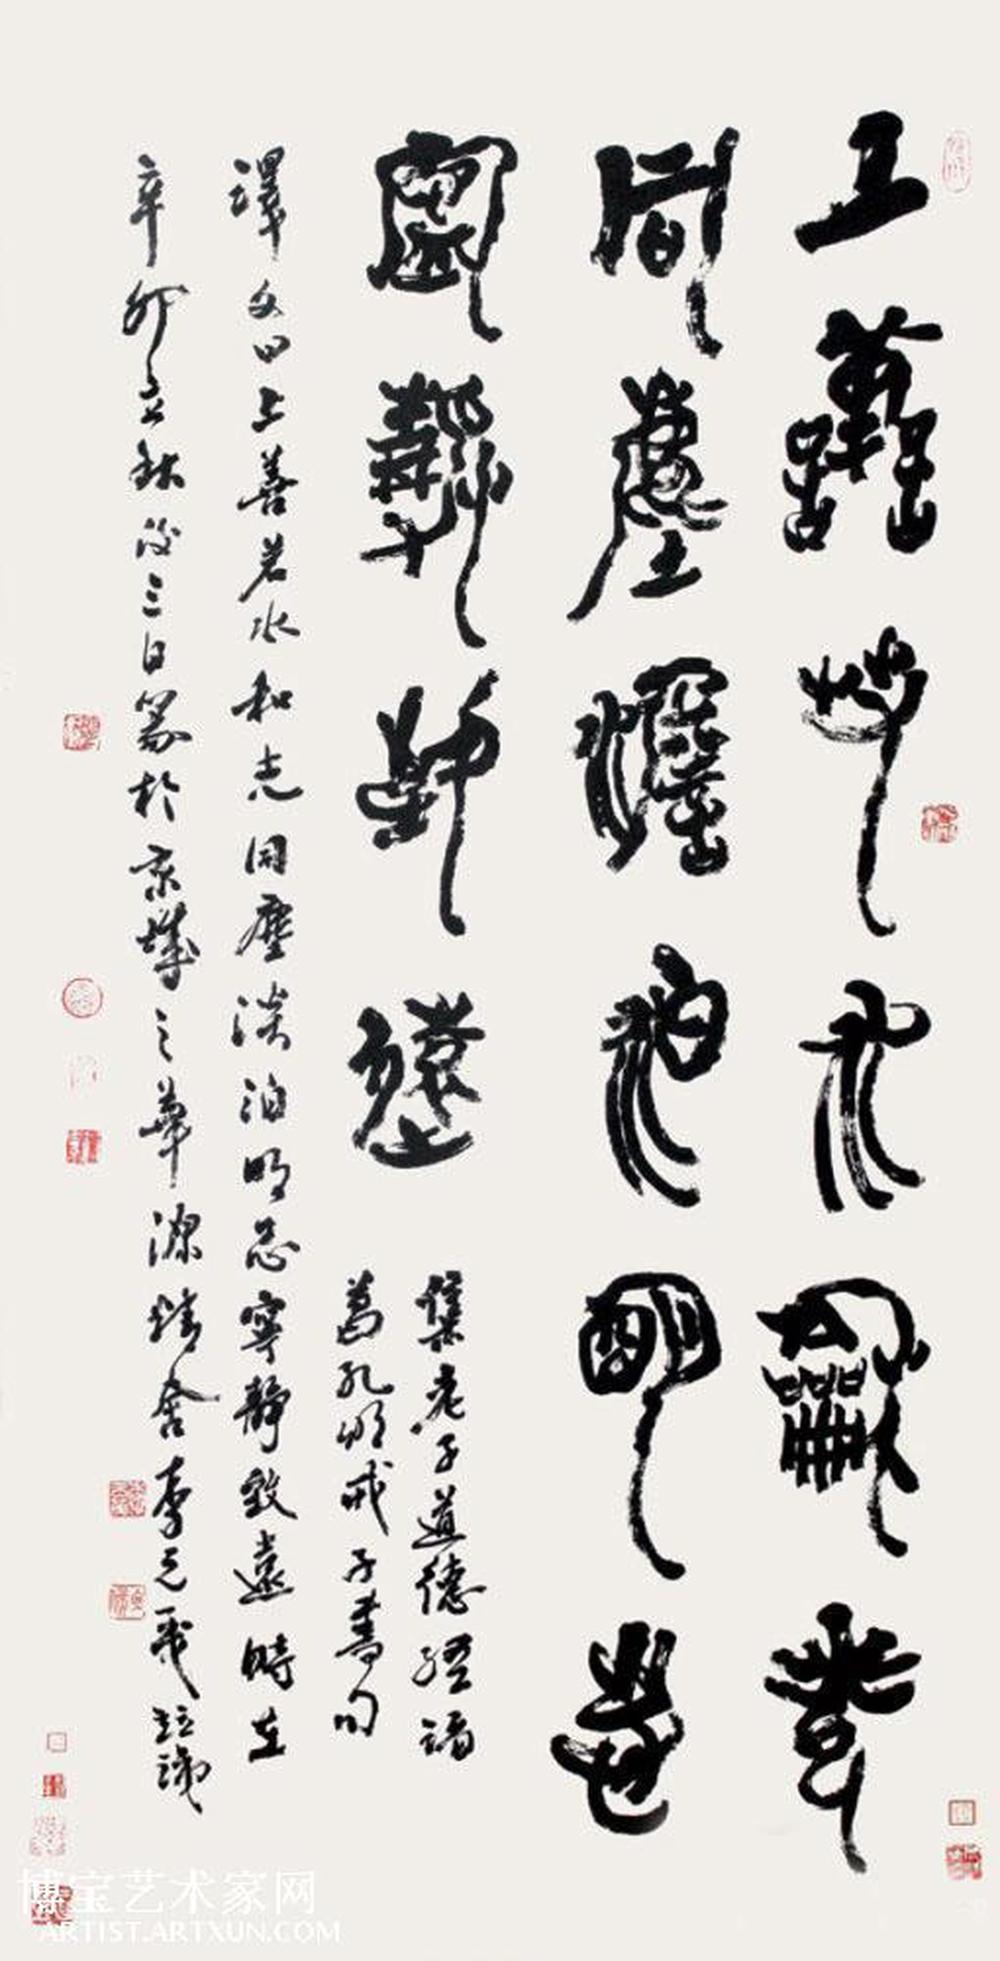 上善若水和光
同塵淡泊明志
寧靜致遠
集老子道德經諸
葛孔明戒子書句
譯文曰上善若水和光同塵淡泊明志寧靜致遠時在
辛卯立秋後三日篆於京城之華源精舍李元並識
博宝艺术家网
ARTIST.ARTXUN.COM